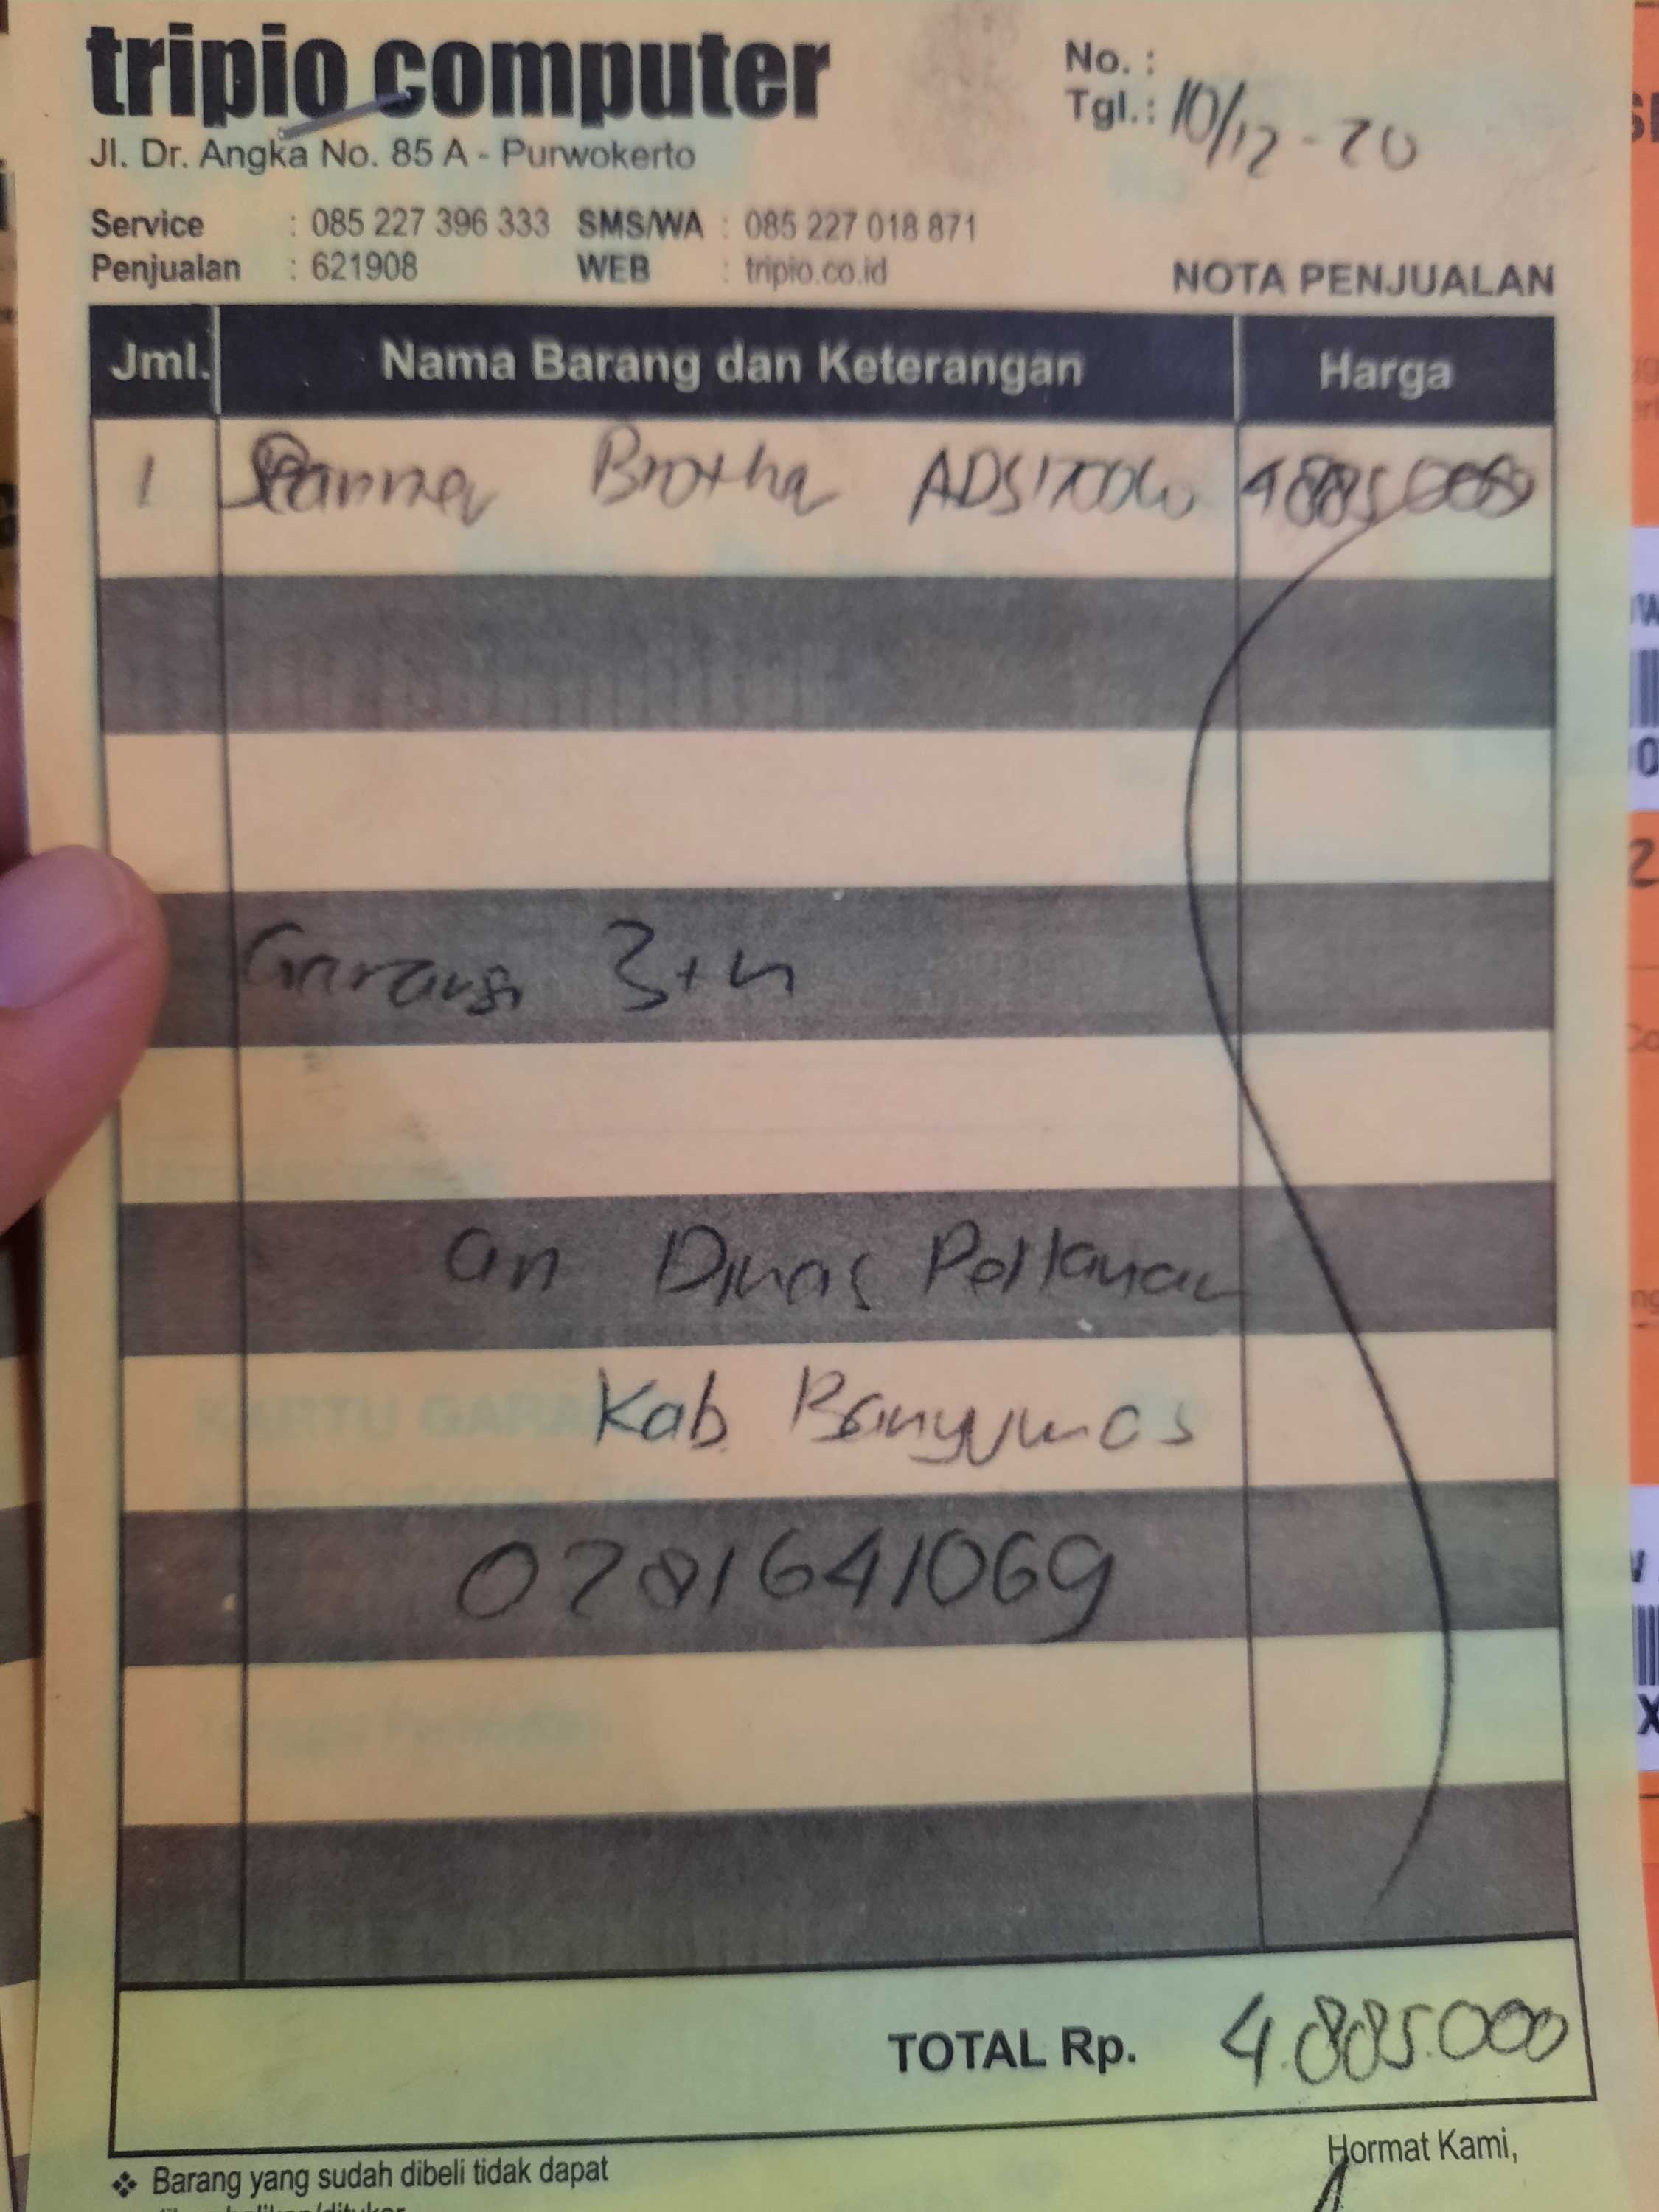 tripio computer
Jl. Dr. Angka No. 85 A - Purwokerto
No. :
Tgl.: 10/12-20
Service : 085 227 396 333 SMS/WA : 085 227 018 871
Penjualan : 621908 WEB : tripio.co.id
NOTA PENJUALAN
Jml. Nama Barang dan Keterangan Harga
1 Scanner Brother ADS1700W 4885000
Garansi 3 th
an Dinas Pertanian
Kab Banyumas
0281641069
TOTAL Rp. 4.885.000
Hormat Kami,
❖ Barang yang sudah dibeli tidak dapat